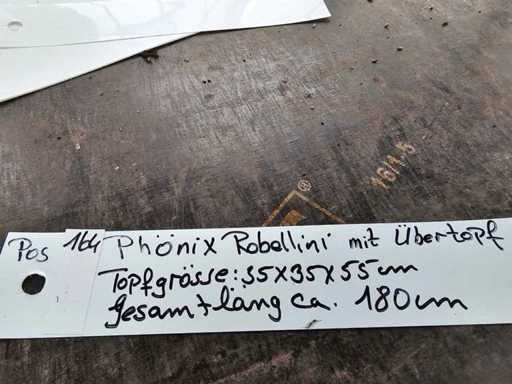 Pos 164 Phönix Robellini mit Übertopf
Topfgrösse: 35x35x55cm
Gesamtläng ca. 180cm
®
16/1-5